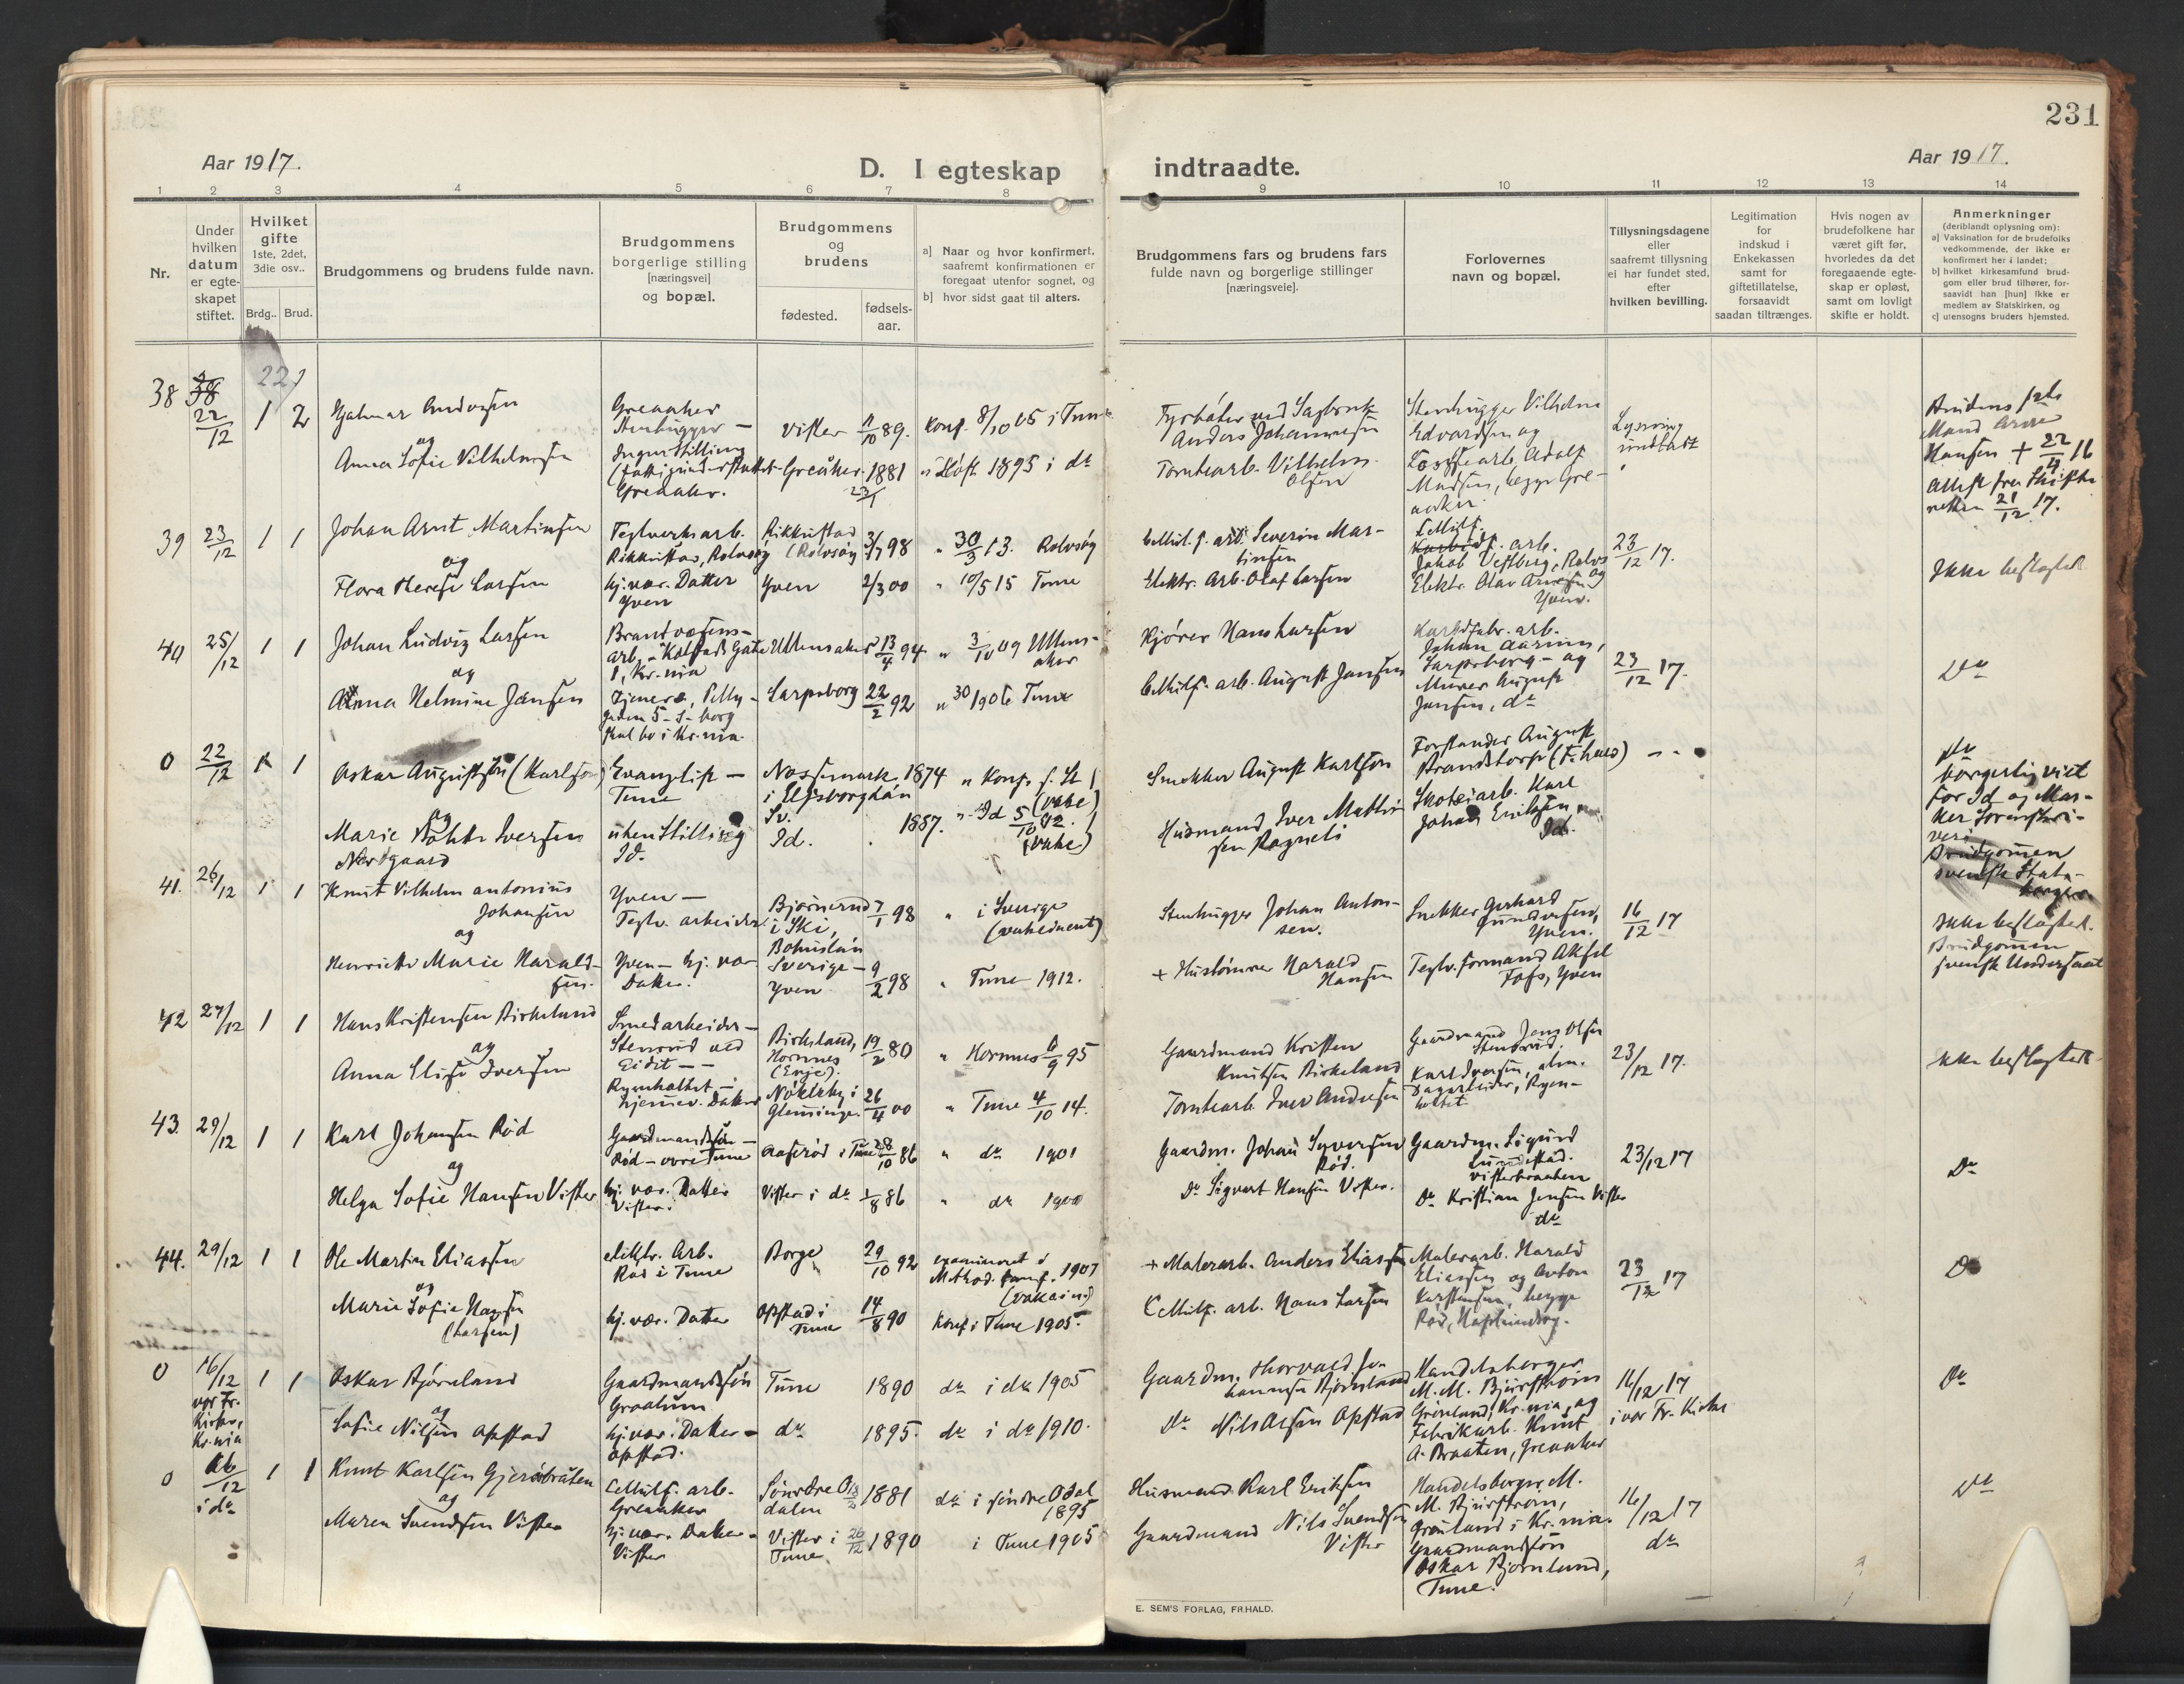 231
Aar 1917.
D. I egteskap
indtraadte.
Aar 1917.
1 2 3 4 5 6 7 8 9 10 11 12 13 14
Nr.
Under hvilken datum er egteskapet stiftet.
Hvilket gifte
1ste, 2det, 3die osv..
Brdg.. Brud.
Brudgommens og brudens fulde navn.
Brudgommens borgerlige stilling
[næringsvei]
og bopæl.
Brudgommens og brudens
fødested.
fødselsaar.
a] Naar og hvor konfirmert, saafremt konfirmationen er foregaat utenfor sognet, og
b] hvor sidst gaat til alters.
Brudgommens fars og brudens fars
fulde navn og borgerlige stillinger
[næringsveie].
Forlovernes
navn og bopæl.
Tillysningsdagene
eller
saafremt tillysning
ei har fundet sted,
efter
hvilken bevilling.
Legitimation
for
indskud i
Enkekassen
samt for
giftetillatelse,
forsaavidt
saadan tiltrænges.
Hvis nogen av
brudefolkene har
været gift før,
hvorledes da det
foregaaende egte-
skap er opløst,
samt om lovligt
skifte er holdt.
Anmerkninger
(deriblandt oplysning om):
a] Vaksination for de brudefolks vedkommende, der ikke er konfirmert her i landet;
b] hvilket kirkesamfund brudgom eller brud tilhører, forsaavidt han [hun] ikke er medlem av Statskirken, og
c] utensogns bruders hjemsted.
38
22/12
1 2
Hjalmar Andersen
og
Anna Sofie Vilhelmsen
Greaaker
Stenhugger
Ingen Stilling
Greaaker.
Vister 11/10 89.
Greåker. 1881
23/1
Konf. 8/10 05 i Tune
" Høst 1895 i do
Fyrbøter ved Sagbruk
Anders Johannesen
Tomtearb. Vilhelm
Olsen
Stenhugger Vilhelm
Edvardsen og
Adolf
Madsen, begge Gre-
aaker
Lysning
undladt
Brudens første
Mand Arne
Hansen + 22/4 16
Attest fra Skifte-
retten 21/12 17.
39
23/12
1 1
Johan Arnt Martinsen
og
Flora Therese Larsen
Teglverksarb.
Rikkustad, Rolvsøy
hj. vær. Datter
Yven
Rikkustad
(Rolvsøy 3/7 98
Yven 2/3 00
" 30/3 13. Rolvsøy
" 10/5 15 Tune
Cellul. f. arb. Severin Mar-
tinsen
Elektr. Arb. Olaf Larsen
Cellulf. arb.
Jakob Vestberg, Rolvs
og
Elektr. Olav Arnesen
Yven.
23/12 17.
Ikke beslegtet
40
25/12
1 1
Johan Ludvig Larsen
og
Anna Helmine Jansen
Brandvæsens-
arb. - Kolstads Gate
1, Kr.nia
Tjener,
gaden 5 - S-borg
skal bo i Kr.nia.
Ullensaker 13/4 94
Sarpsborg 22/2 92
" 3/10 09 Ullens-
aker
" 30/9 06 Tune
Kjører Hans Larsen
Cellulf. arb. August Jansen
Karbidfabr. arb.
Johan
Sarpsborg - og
Murer August
Jansen, do
23/12 17.
Do
0
22/12
1 1
Oskar Augustsson (Karlsson)
og
Marie Iversen
Nordgaard
Evangelist -
Tune
uten Stilling
Id.
Nossemark 1874
i Elfsborg län
Sv.
Id. 1887.
Snekker August Karlsson
Husmand Iver Mathi-
sen Ragneli
Forstander August
Brandstorp (F.hald)
Skotøiarb. Karl
Johan Eriksen
Id.
do
borgerlig viet
for Id og Mar-
ker Sorenskri-
veri
Brudgommen
svensk Stats-
borger
41.
26/12
1 1
Knut Vilhelm Antonius
Johansen
og
Henriette Marie Harald-
sen.
Yven -
Teglv. arbeider.
Yven - hj. vær
Datter.
Bjørnerud 7/1 98
i Ski,
Bohuslän
Sverige -
Yven 9/2 98
" i Sverige
" Tune 1912.
Stenhugger Johan Anton-
sen.
+ Hustømrer Harald
Hansen
Snekker Gerhard
Gundersen,
Yven.
Teglv. formand Aksel
Foss, Yven
16/12 17
Ikke beslegtet.
Brudgommen
svensk Undersaat
42
27/12
1 1
Hans Kristensen Birkeland
og
Anna Elise Iversen
Smedarbeider -
Stenrød ved
Eidet -
Ryenholtet -
hjemmev. Datter
Birkeland, 19/2 80
Hornnes
(Evje).
Nøkleby i
Glemminge 26/4 00
" Hornnes 6/9 95
" Tune 4/10 14.
Gaardmand Kristen
Knutsen Birkeland
Tomtearb. Iver Andersen
Gaardmand Jens Olsen
Stenrød.
Karl Iversen, alm.
Dagarbeider, Ryen-
holtet
23/12 17.
Ikke beslegtet
43.
29/12
1 1
Karl Johansen Rød
og
Helga Sofie Hansen Vister
Gaardmandssøn -
Rød - øvre Tune
hj. vær. Datter
Vister.
Aaserød i Tune 28/10 86
Vister i do 1/8 86
" do 1901
" do 1900
Gaardm. Johan Syversen
Rød.
Do Sigvart Hansen Vister.
Gaardm. Sigurd
Lundestad.
Visterbraaten
Do Kristian Jensen Vister
do
23/12 17
Do
44.
29/12
1 1
Ole Martin Eliassen
og
Marie Sofie Hansen
(Larsen)
elektr. Arb.
Rød i Tune
hj. vær. Datter
Borge 29/10 92
Opstad i
Tune 14/8 90
examineret i
Method. samf. 1907
Konf. i Tune 1905.
+ Malerarb. Anders Eliassen
Cellulf. arb. Hans Larsen
Malerarb. Harald
Eliassen og Anton
Karstensen, begge
Rød, Hafslundsøy.
23/12 17
Do
0
16/12
vor Fr.
Kirke,
Kr.nia
1 1
Oskar Bjørnland
og
Sofie Nilsen Opstad
Gaardmandssøn
Graalum
hj. vær. Datter -
Opstad.
Tune 1890
do 1895.
do i do 1905
do i do 1910.
Gaardm. Thorvald Jo-
hannesen Bjørnland
Do Nils Olsen Opstad
Handelsborger
M. M. Bjurstrøm
Grønland, Kr.nia, og
Fabrikarb. Knut
A. Braaten, Greaaker
16/12 17
i vor Fr. Kirke
Do
0
16/12
i do
1 1
Knut Karlsen Gjersøbråten
og
Maren Svendsen Vister
Cellulf. arb.
Greaaker
hj. vær. Datter -
Vister
Søndre O
dalen 1881
Vister i 26/12 1890
Tune.
do i søndre Odal
1895
i Tune 1905
Husmand Karl Eriksen
Gaardmand Nils Svendsen
Vister
Handelsborger M.
M. Bjurstrøm,
Grønland i Kr.nia.
Gaardmandssøn
Oskar Bjørnland,
Tune.
16/12 17
do
Do
E. SEM'S FORLAG, FR.HALD.